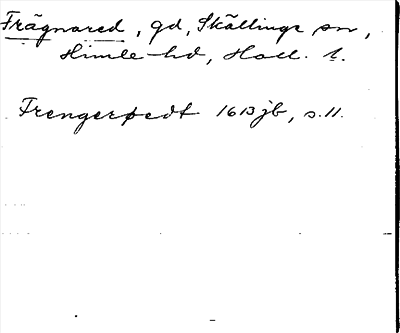 Frägnared, gd, Skällinge sn,
Himle hd, Hall. l.
Frengerøedt 1613 jb, s. 11.